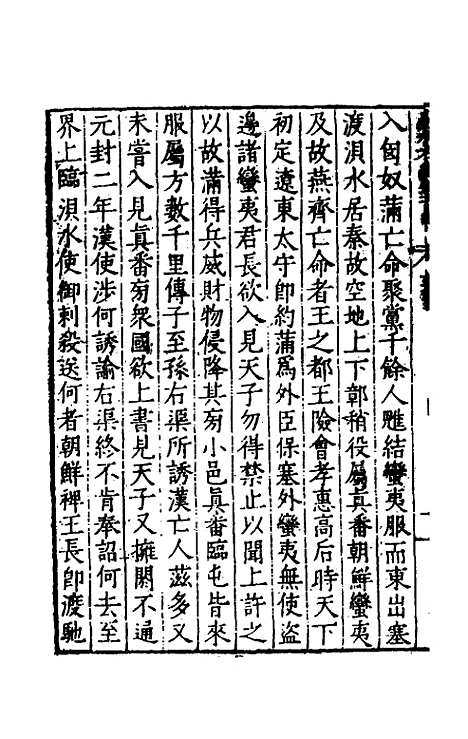 入匈奴蒲亡命聚黨千餘人魋結蠻夷服而東出塞
渡浿水居秦故空地上下鄣稍役屬真番朝鮮蠻夷
及故燕齊亡命者王之都王險會孝惠高后時天下
初定遼東太守卽約蒲爲外臣保塞外蠻夷無使盜
邊諸蠻夷君長欲入見天子勿得禁止以聞上許之
以故滿得兵威財物侵降其旁小邑眞番臨屯皆來
服屬方數千里傳子至孫右渠所誘漢亡人滋多又
未嘗入見眞番旁衆國欲上書見天子又擁閼不通
元封二年漢使涉何誘諭右渠終不肯奉詔何去至
界上臨浿水使御刺殺送何者朝鮮裨王長卽渡馳